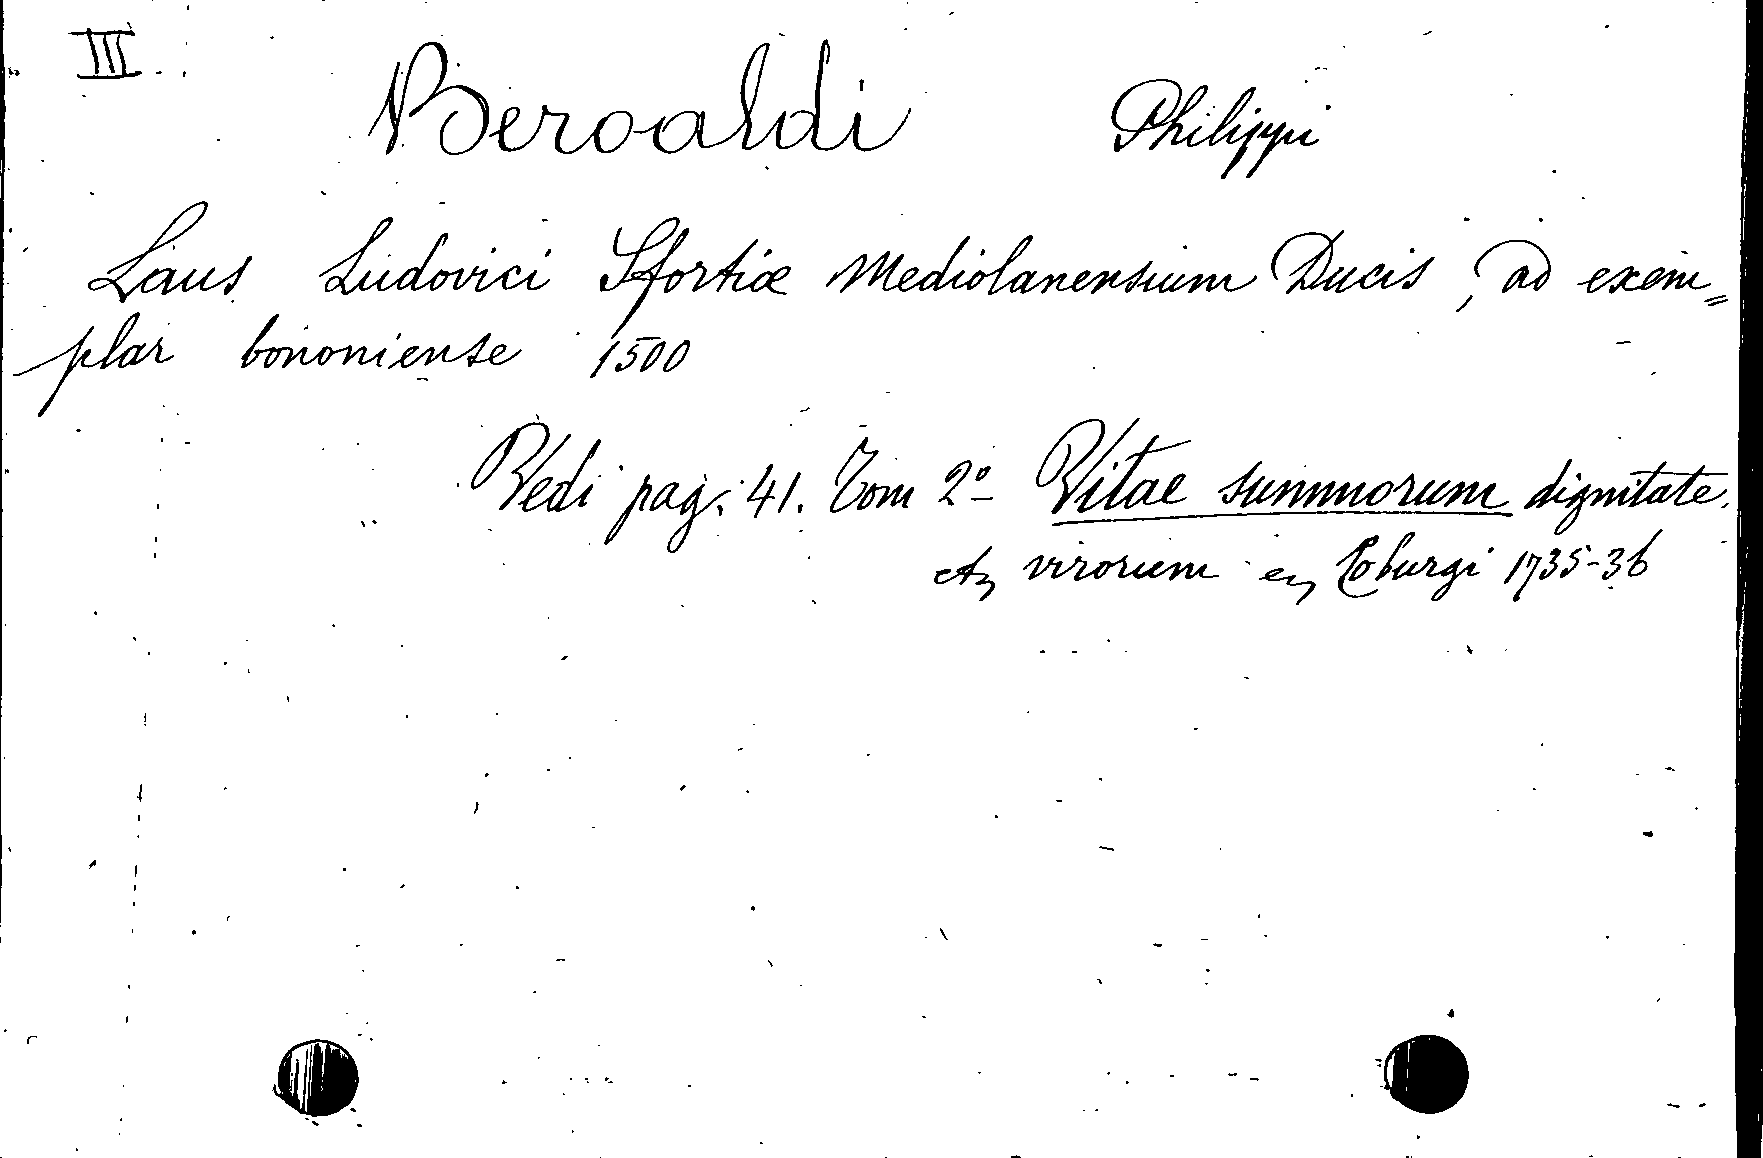 III
Beroaldi Philippi
Laus Ludovici Sfortiæ Mediolanensium Ducis, ad exem=
plar bononiense 1500
Vedi pag. 41. Tom 2º Vitae summorum dignitate
virorum Coburgi 1735-36